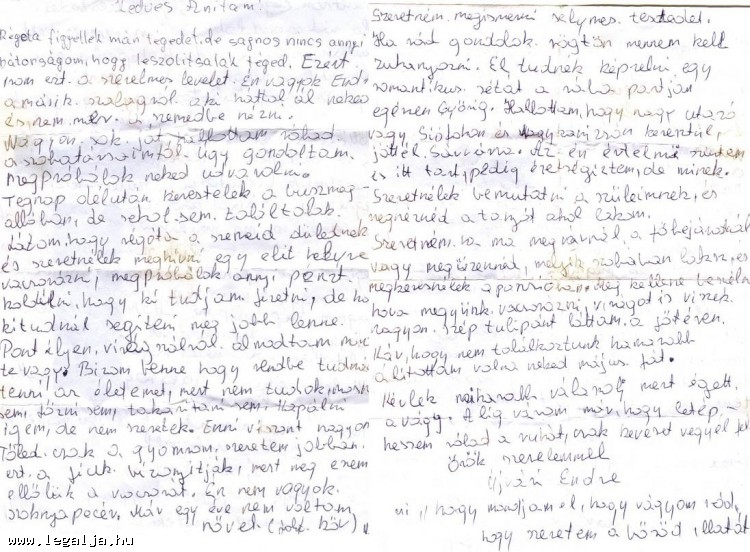 Kedves Anitám!
Régóta figyellek mán tégedet, de sajnos nincs annyi
bátorságom, hogy leszólitsalak téged. Ezért
irom ezt a szerelmes levelet. Én vagyok Endre
a másik szalagról aki háttal ül neked
és nem mer a szemedbe nézni.
Nagyon sok jót hallottam rólad
a szobatársaimtól. Úgy gondoltam
megpróbálok neked udvarolni.
Tegnap délután kerestelek a buszmeg-
állóban, de sehol sem találtalak.
Látom, hogy régóta a szemeid
és szeretnélek meghivni egy elit helyre
vacsorázni, megpróbálok annyi pénzt
hogy ki tudjam fizetni, de ha
kitudnál segiteni még jobb lenne.
Pont ilyen virágszálról álmodtam mint
te vagy. Bizom benne hogy rendbe tudnád
tenni az életemet, mert nem tudok mosni
sem, főzni sem, takaritani sem. Kapálni
igen, de nem szeretek. Enni viszont nagyon.
Tőled csak a gyomrom, szeretem jobban
ezt a fiúk bizonyitják, mert még ezek
ellőlük a vacsorát. Én nem vagyok
szoknyapecér, már egy éve nem voltam
nővel.
Szeretném megismerni selymes testedet.
Ha rád gondolok rögtön mennem kell
zuhanyozni. El tudnék képzelni egy
romantikus sétát a rába partján
egészen Győrig. Hallottam, hogy nagy utazó
vagy Siófokon és Nagykanizsán keresztül
jöttél Sárvárra. Az én értelmi szintem
és itt tart, pedig érettségiztem, de minek.
Szeretnélek bemutatni a szüleimnek, és
megnéznéd a tanyát ahol lakom.
Szeretném ha ma megvárnál a főbejáratnál
vagy megüzennéd, melyik szobában laksz, és
megkeresnélek a
hova megyünk vacsorázni, virágot is viszek
nagyon szép tulipánt láttam a főtéren.
Kár, hogy nem találkoztunk hamarabb
állitottam volna neked május fát.
Kérlek válaszolj mert éget
a vágy. Alig várom már, hogy letép-
hessem rólad a ruhát, csak keveset vegyél fel
Örök szerelemmel
Ujvári Endre
ui,, hogy mondjam el, hogy vágyom rád,
hogy szeretem a bőröd illatát
www.legalja.hu